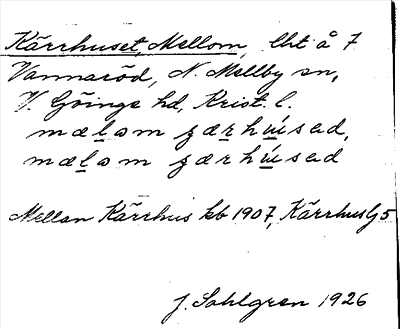 Kärrhuset, Mellom, lht å 7
Vannaröd, N. Mellby sn,
V. Göinge hd, Krist. l.
mælam ɟærhúsad,
mælam ɟærhúsad
Mellan Kärrhus kb 1907, Kärrhus G5
J. Sahlgren 1926